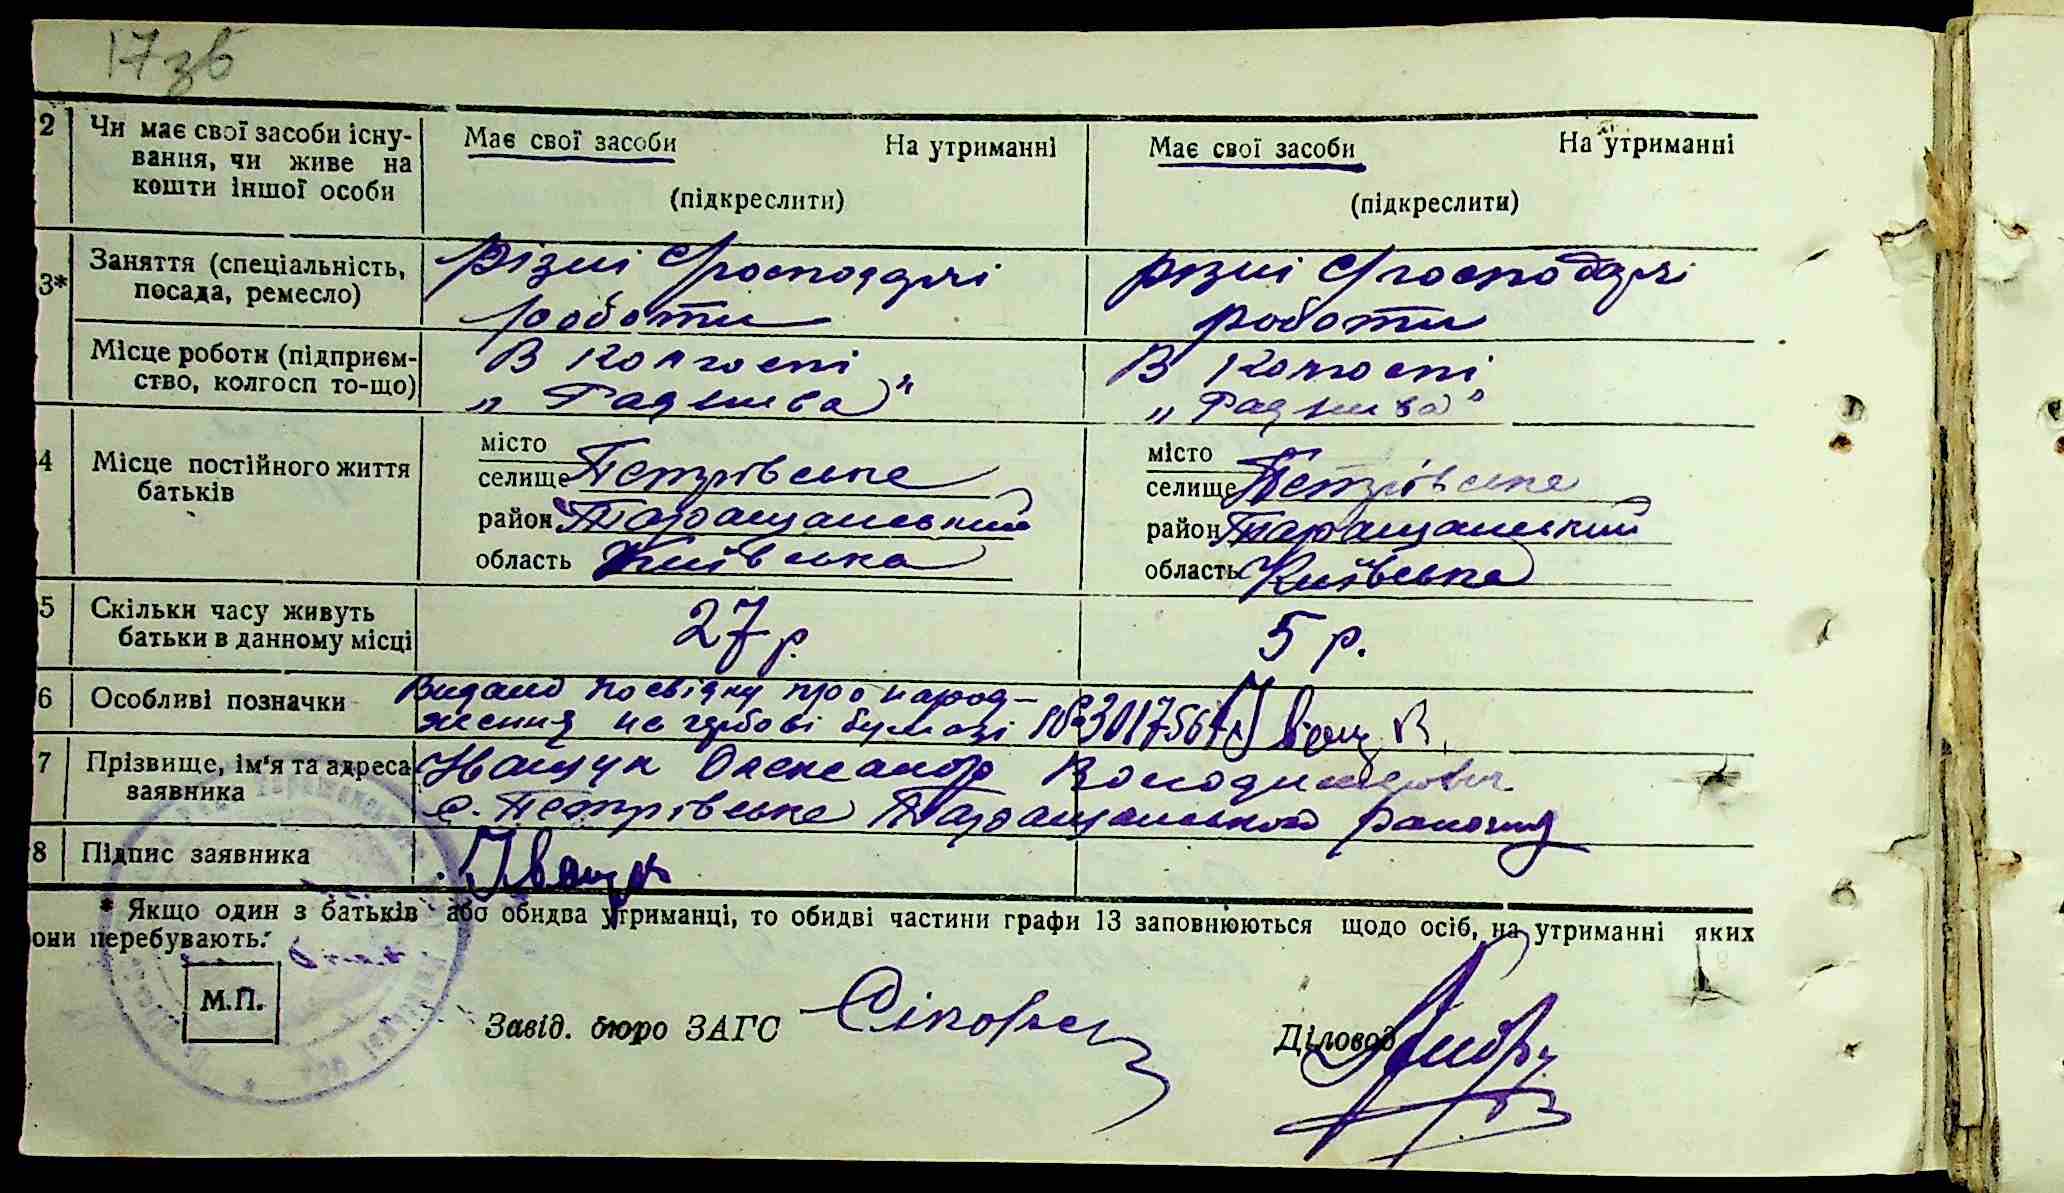 17зв
2 Чи має свої засоби існу- Має свої засоби На утриманні Має свої засоби На утриманні
вання, чи живе на
кошти іншої особи (підкреслити) (підкреслити)
3* Заняття (спеціальність, різні господарчі різні господарчі
посада, ремесло) роботи роботи
Місце роботи (підприєм- В колгоспі В колгоспі
ство, колгосп то-що) „ Рад нива" „ Рад нива"
4 Місце постійного життя місто місто
батьків селище Петрівське селище Петрівське
район Таращанський район Таращанський
область Київська область Київська
5 Скільки часу живуть 27 р. 5 р.
батьки в данному місці
6 Особливі позначки Видано посвідку про народ-
ження на гербові бумазі № 3017564 Іващ
7 Прізвище, ім'я та адреса Іващук Олександр Володимирович
заявника с. Петрівське Таращанського району
8 Підпис заявника Іващук
* Якщо один з батьків або обидва утриманці, то обидві частини графи 13 заповнюються щодо осіб, на утриманні яких
они перебувають.
М.П.
Завід. бюро ЗАГС Діловод